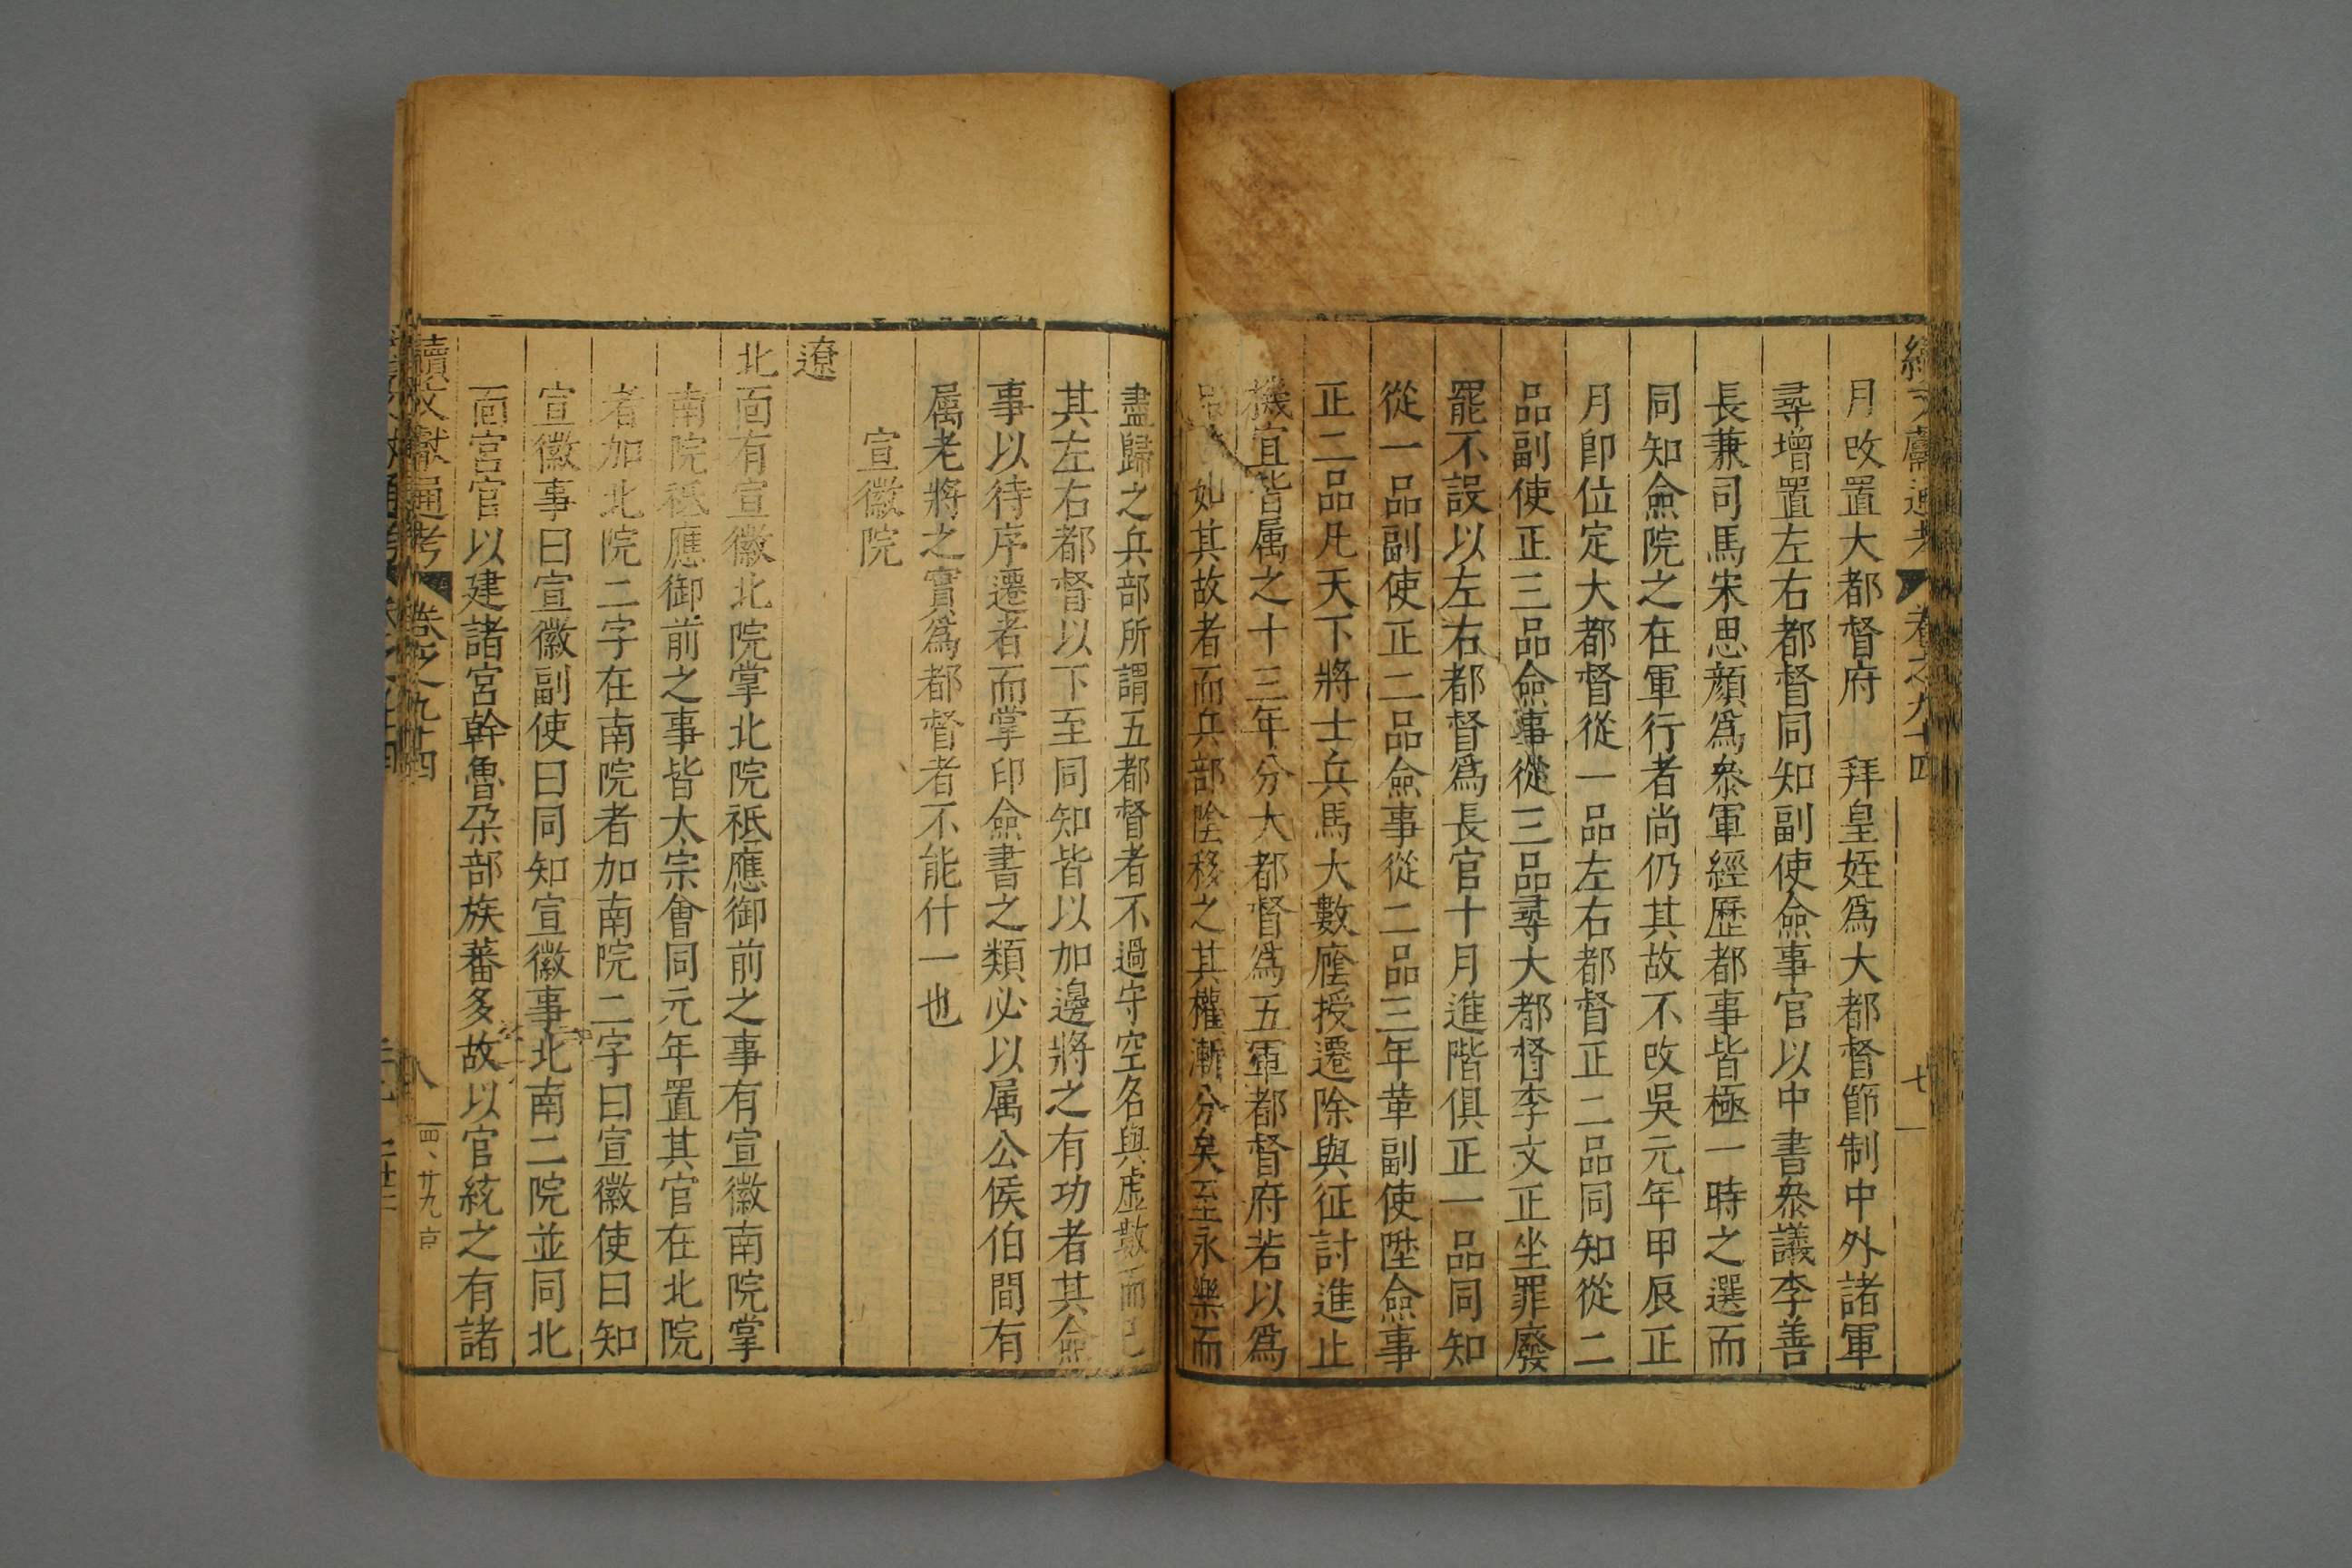 續文獻通考 卷之九十四 七
月改置大都督府 拜皇姪爲大都督節制中外諸軍
尋增置左右都督同知副使僉事官以中書叅議李善
長兼司馬宋思顔爲叅軍經歷都事皆極一時之選而
同知僉院之在軍行者尚仍其故不改吳元年甲辰正
月卽位定大都督從一品左右都督正二品同知從二
品副使正三品僉事從三品尋大都督李文正坐罪廢
罷不設以左右都督爲長官十月進階俱正一品同知
從一品副使正二品僉事從二品三年革副使陞僉事
正二品凡天下將士兵馬大數廕授遷除與征討進止
機宜皆属之十三年分大都督爲五軍都督府若以爲
如其故者而兵部陰移之其權漸分矣至永樂而
盡歸之兵部所謂五都督者不過守空名與虛數而已
其左右都督以下至同知皆以加邊將之有功者其僉
事以待序遷者而掌印僉書之類必以属公侯伯間有
属老將之實爲都督者不能什一也
宣徽院
遼
北面有宣徽北院掌北院祗應御前之事有宣徽南院掌
南院祗應御前之事皆太宗會同元年置其官在北院
者加北院二字在南院者加南院二字曰宣徽使曰知
宣徽事曰宣徽副使曰同知宣徽事北南二院並同北
面宮官以建諸宮幹魯朶部族蕃多故以官統之有諸
續文獻通考 卷之九十四 八 四、廿九 京